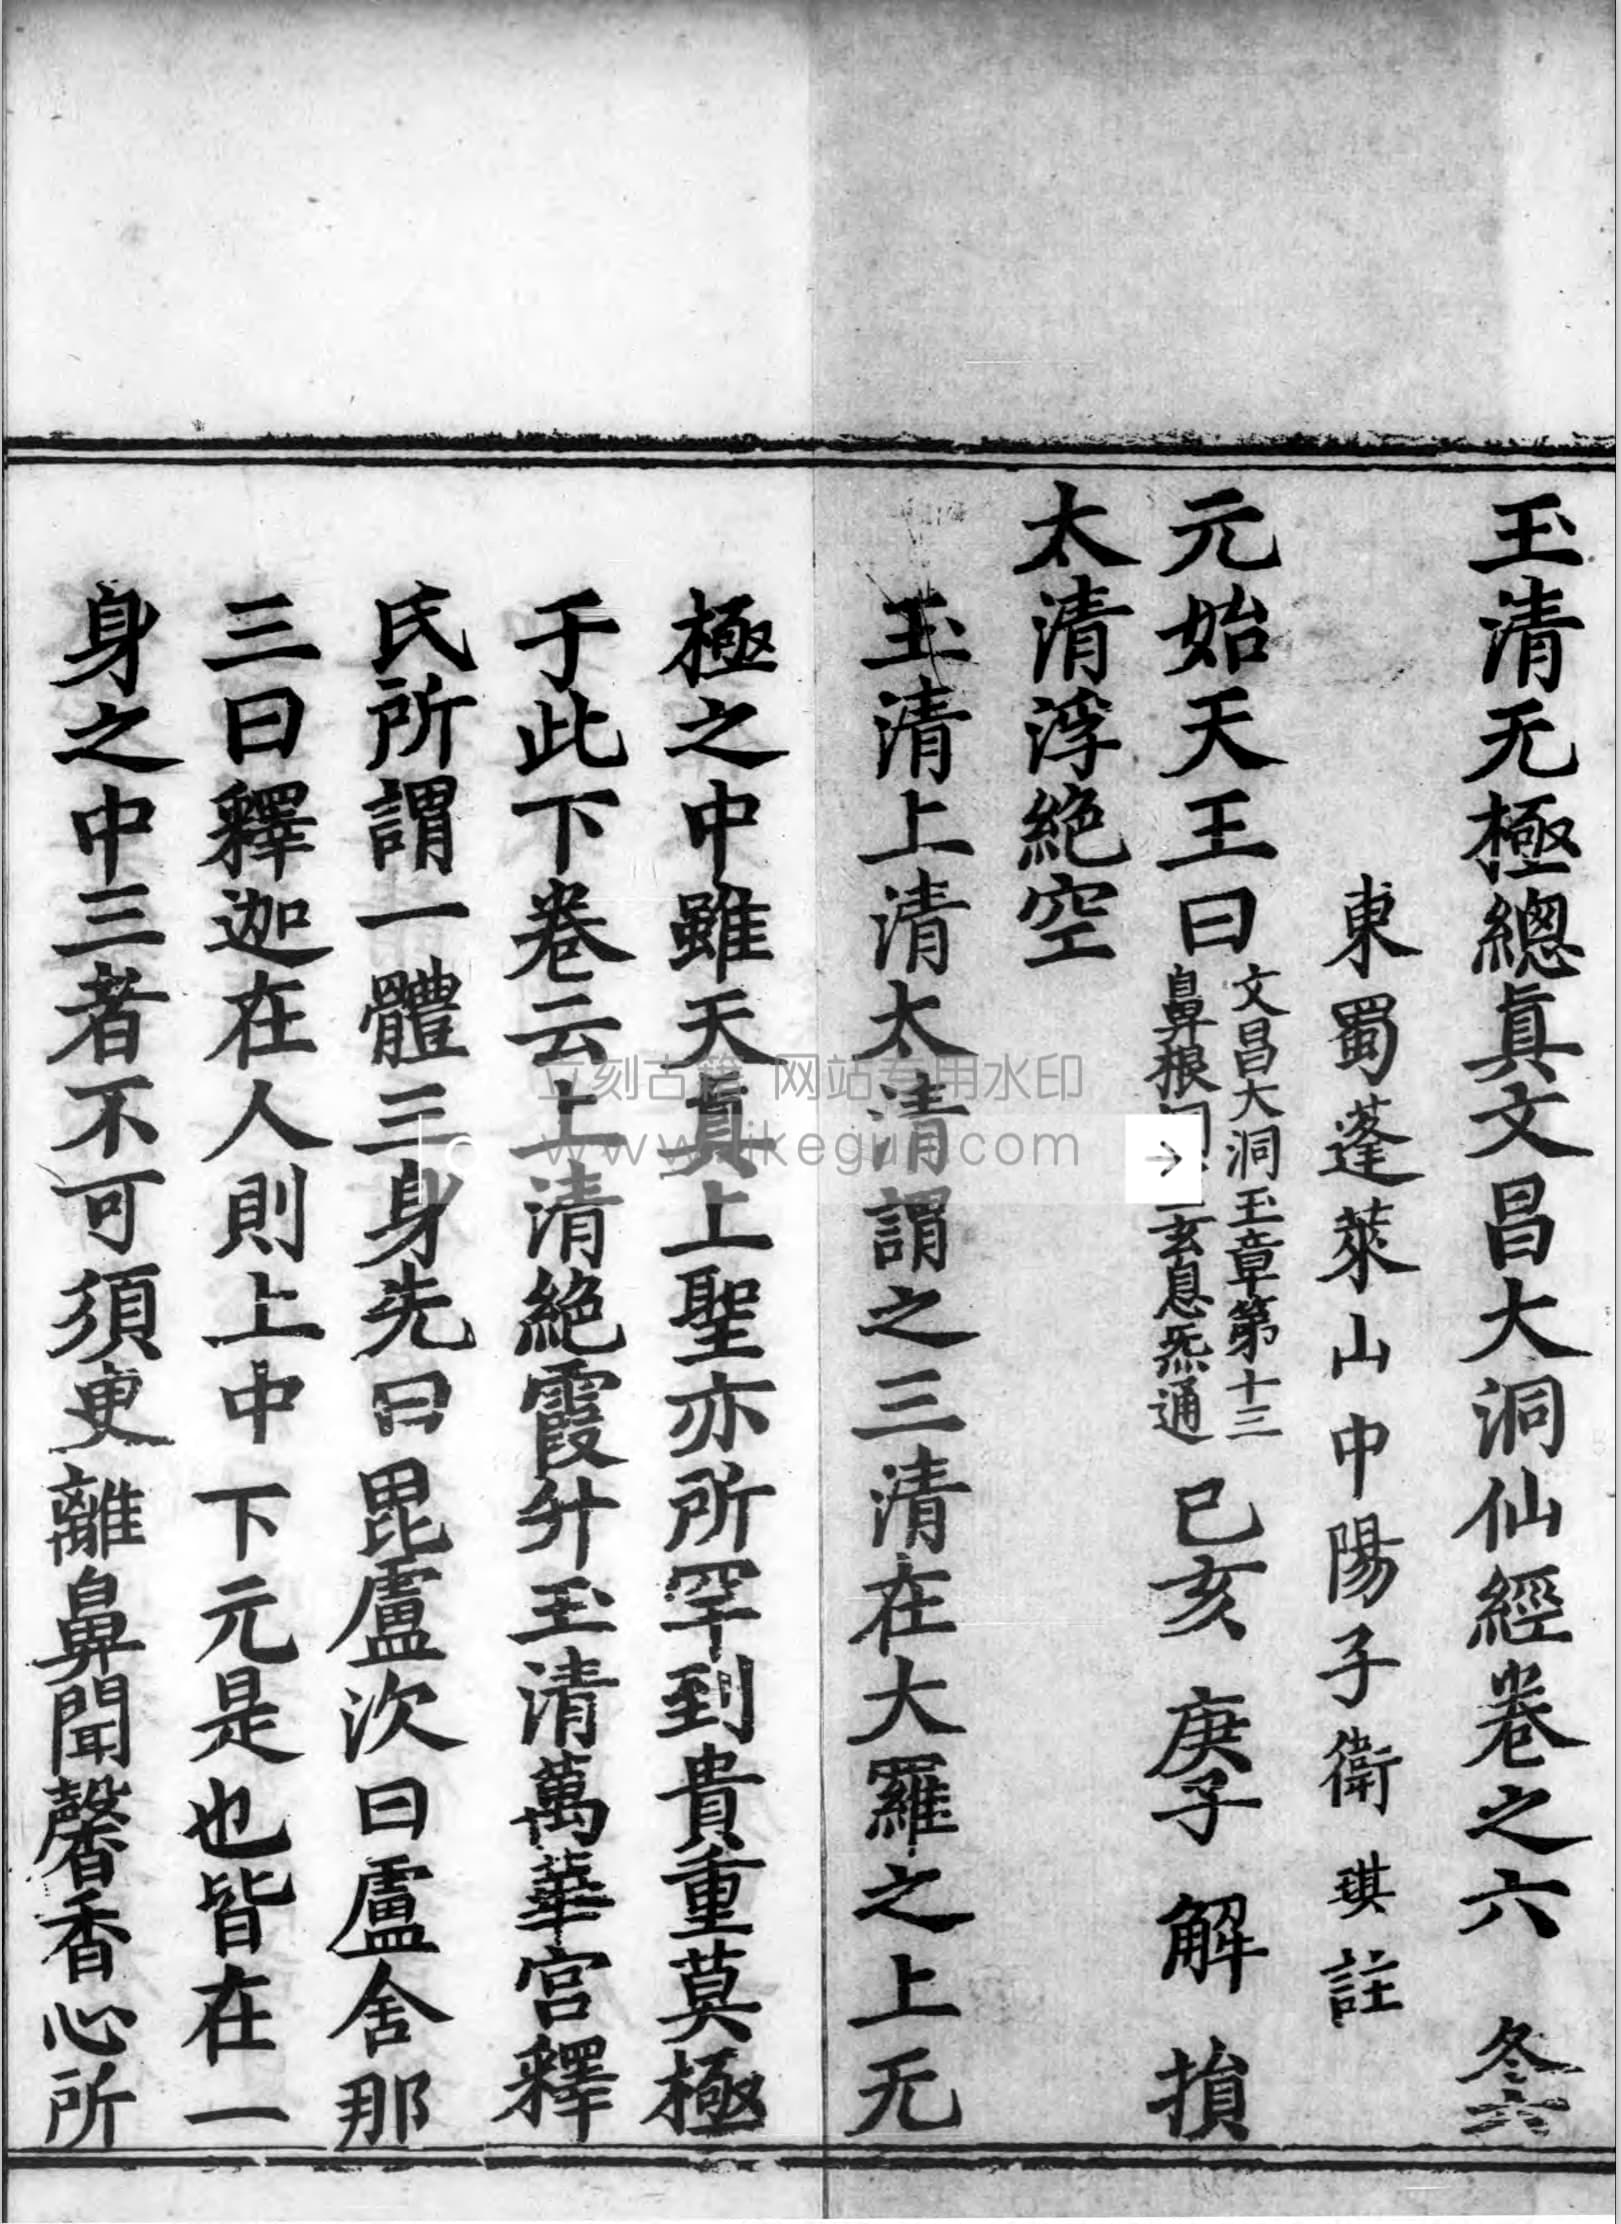 玉清无極總眞文昌大洞仙經卷之六 冬六
東蜀蓬萊山中陽子衛琪註
元始天王曰
文昌大洞玉章第十三
鼻根 玄息炁通
己亥 庚子 解 損
太清浮絶空
玉清上清太清謂之三清在大羅之上无
極之中雖天眞上聖亦所罕到貴重莫極
于此下卷云上清絶霞升玉清萬華宮釋
氏所謂一體三身先曰毘盧次曰盧舍那
三曰釋迦在人則上中下元是也皆在一
身之中三者不可須臾離鼻聞馨香心所
立刻古籍 网站专用水印